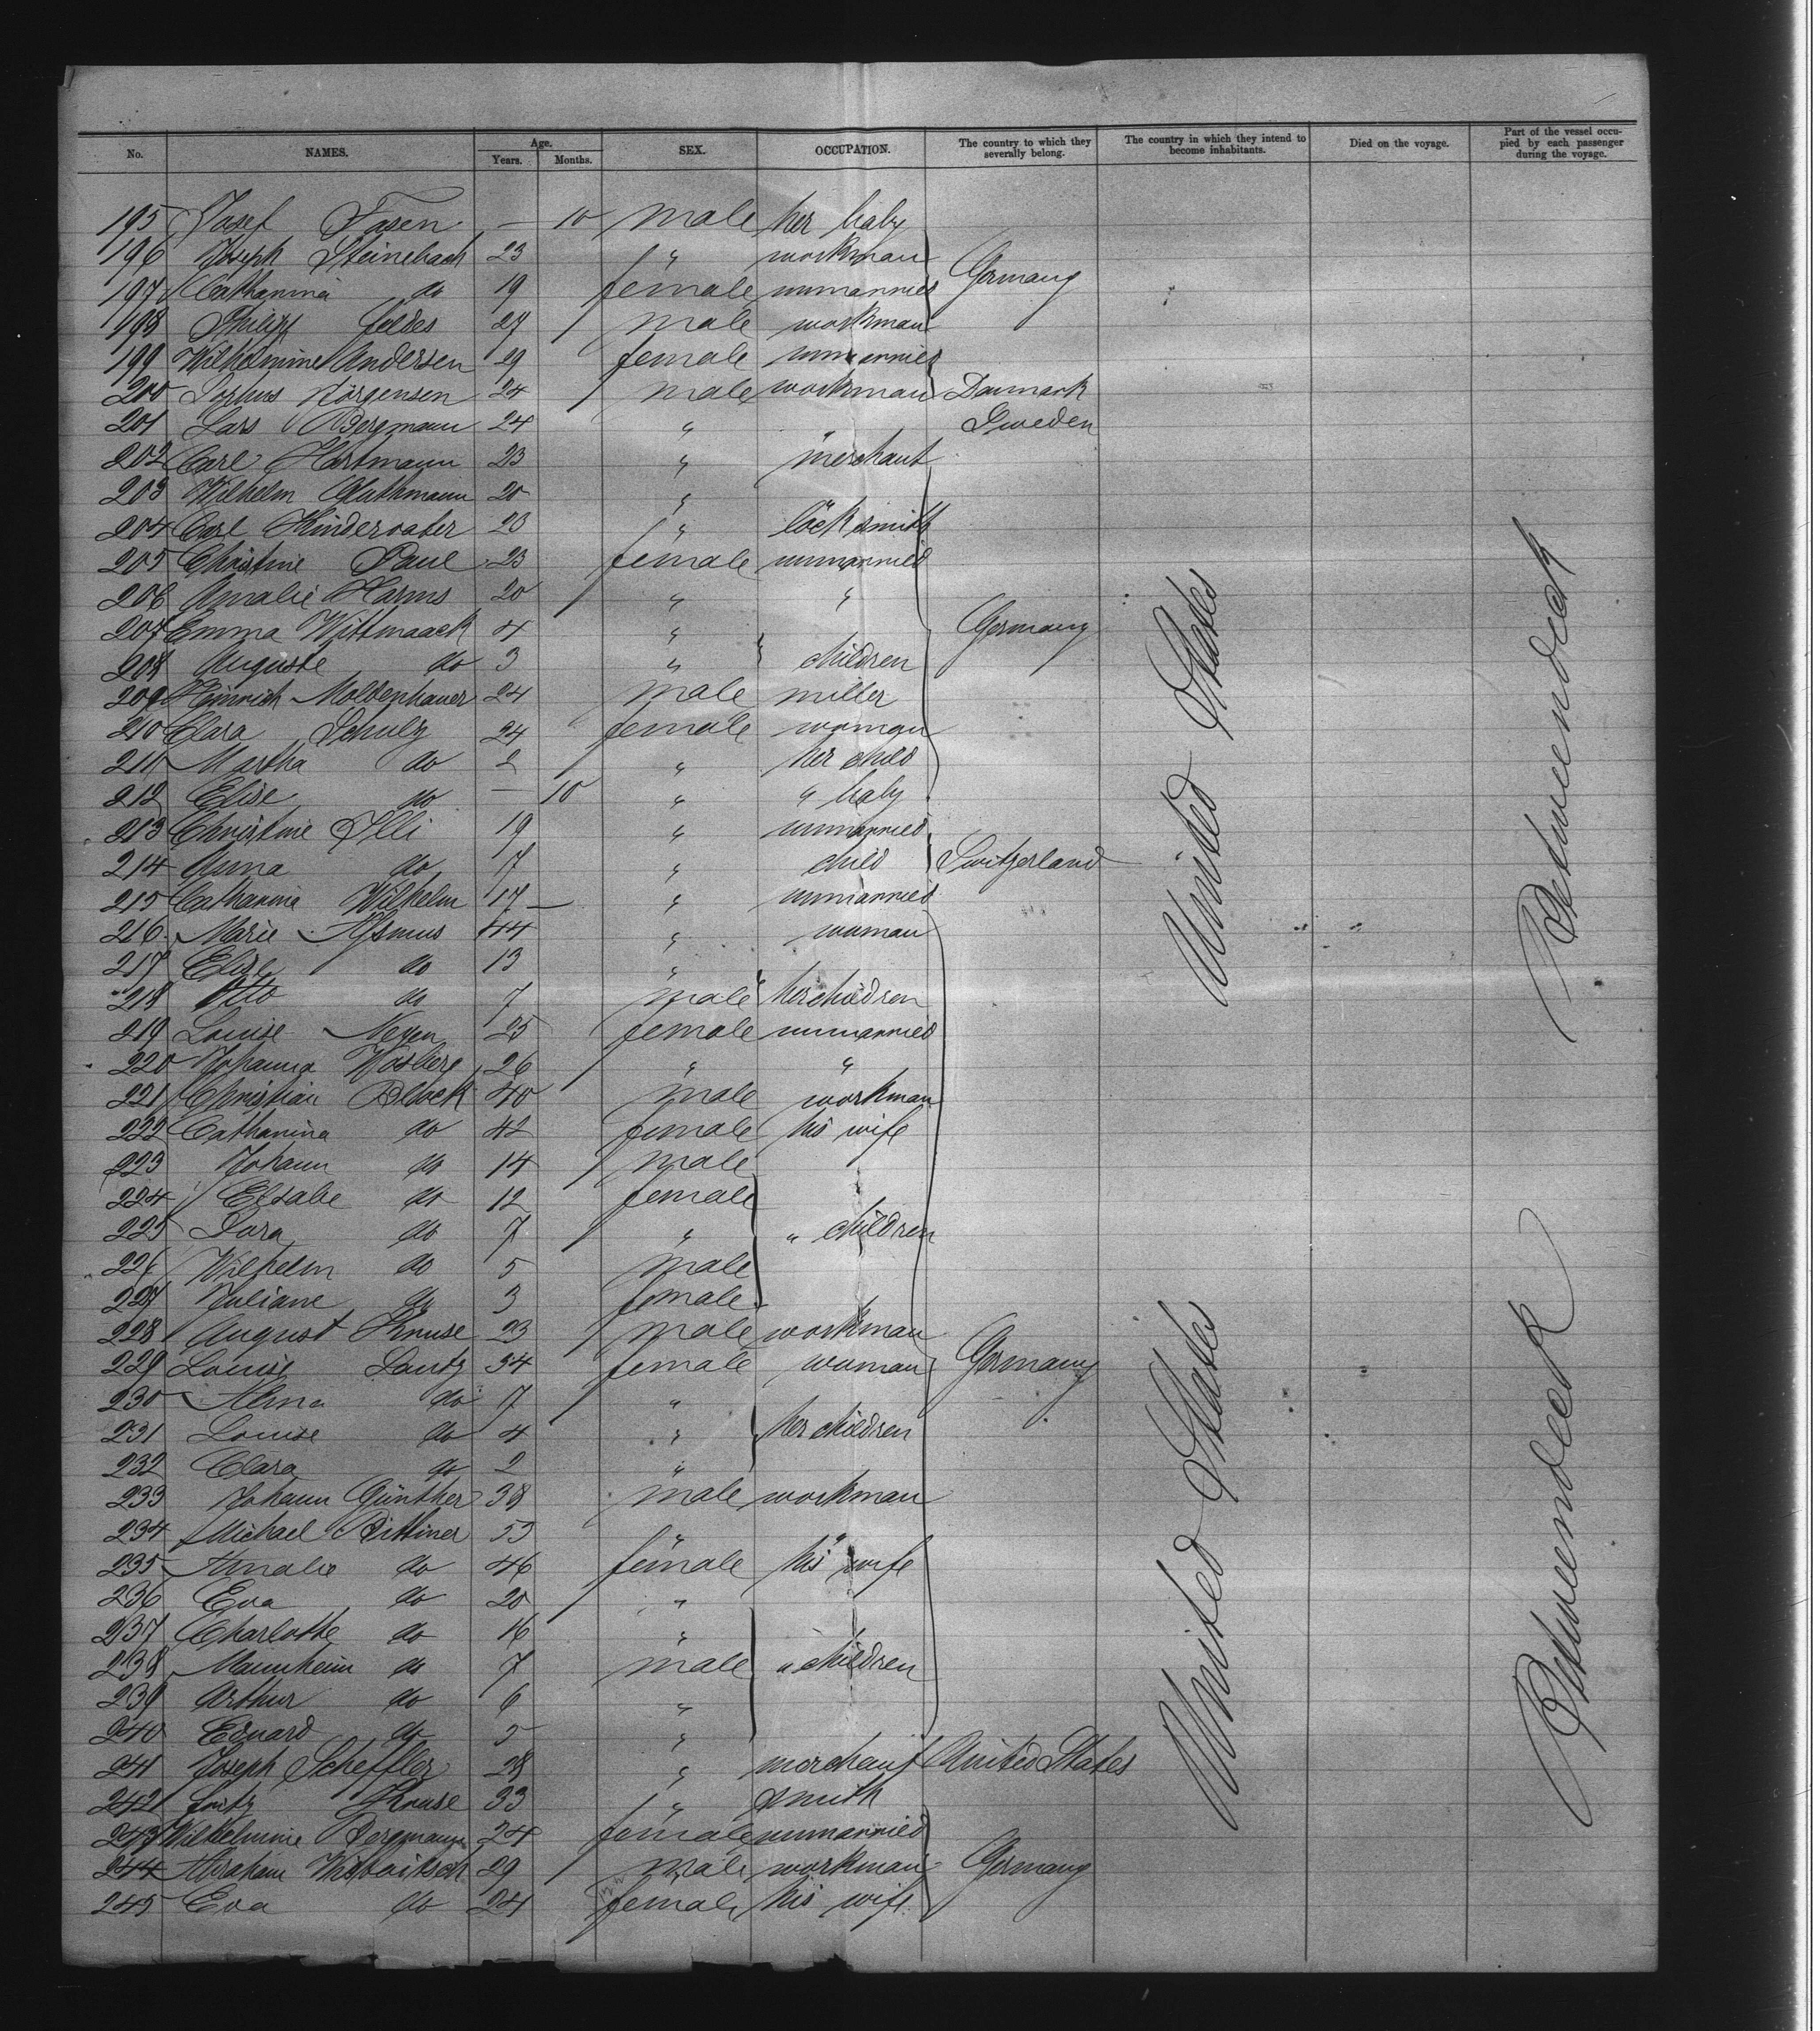 No. NAMES. Age. Years. Months. SEX. OCCUPATION. The country to which they severally belong. The country in which they intend to become inhabitants. Died on the voyage. Part of the vessel occupied by each passenger during the voyage.
195 Josef Fasen — 10 male her baby
196 Joseph Steinebach 23 " workman
197 Catharina do 19 female unmarried Germany
198 Philipp Feldes 27 male workman
199 Wilhelmine Andersen 29 female unmarried
200 Jörgensen 24 male workman Danmark
201 Lars Bergmann 24 " " Sweden
202 Carl Hartmann 23 " merchant
203 Wilhelm Gluthmann 20 " "
204 Carl Kindervater 20 " locksmith
205 Christine Paul 23 female unmarried
206 Amalie Harms 20 " "
207 Emma Wittmaack 4 " Germany
208 Auguste do 3 " children
209 Heinrich Moldenhauer 24 male miller
210 Clara Schulz 24 female woman
211 Martha do 2 " her child
212 Elise do — 10 " " baby
213 Christine Illi 19 " unmarried
214 Anna do 7 " child Switzerland
215 Catharina Wilhelm 17 " unmarried
216 Marie Asmus 44 " woman
217 Elise do 13 "
218 Otto do 7 male her children
219 Louise Neyen 25 female unmarried
220 Johanna 26 " "
221 Christian Block 40 male workman
222 Catharina do 42 female his wife
223 Johann do 14 male
224 Elsabe do 12 female
225 Dora do 7 " " children
226 Wilhelm do 5 male
227 Juliane do 3 female
228 August Kruse 23 male workman
229 Louise Lautz 34 female woman Germany
230 Alma do 7 "
231 Louise do 4 " her children
232 Clara do 2 "
233 Johann Günther 38 male workman
234 Michael Bittiner 53 " "
235 Amalie do 46 female his wife
236 Eva do 20 "
237 Charlotte do 16 "
238 Mannheim do 7 male " children
239 Arthur do 6 "
240 Eduard do 5 "
241 Joseph Scheffler 28 " merchant United States
242 Fritz Kruse 33 " smith
243 Wilhelmine Bergmann 24 female unmarried
244 Abraham 29 male workman Germany
245 Eva do 24 female his wife
United States
United States
Betweendeck
Betweendeck